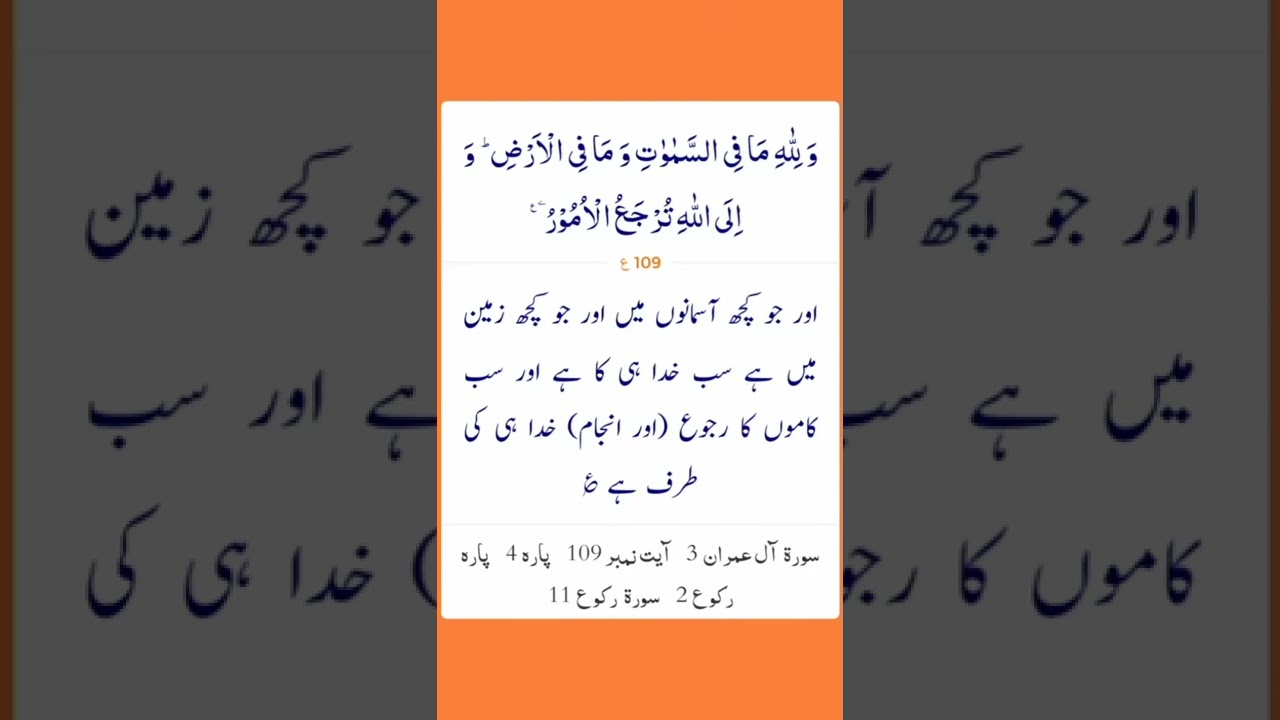 وَ لِلّٰهِ مَا فِی السَّمٰوٰتِ وَ مَا فِی الْاَرْضِ ؕ وَ
اِلَی اللّٰهِ تُرْجَعُ الْاُمُوْرُ ۠
109 ع
اور جو کچھ آسمانوں میں اور جو کچھ زمین
میں ہے سب خدا ہی کا ہے اور سب
کاموں کا رجوع (اور انجام) خدا ہی کی
طرف ہے ع
سورۃ آل عمران 3 آیت نمبر 109 پارہ 4 پارہ
رکوع 2 سورۃ رکوع 11